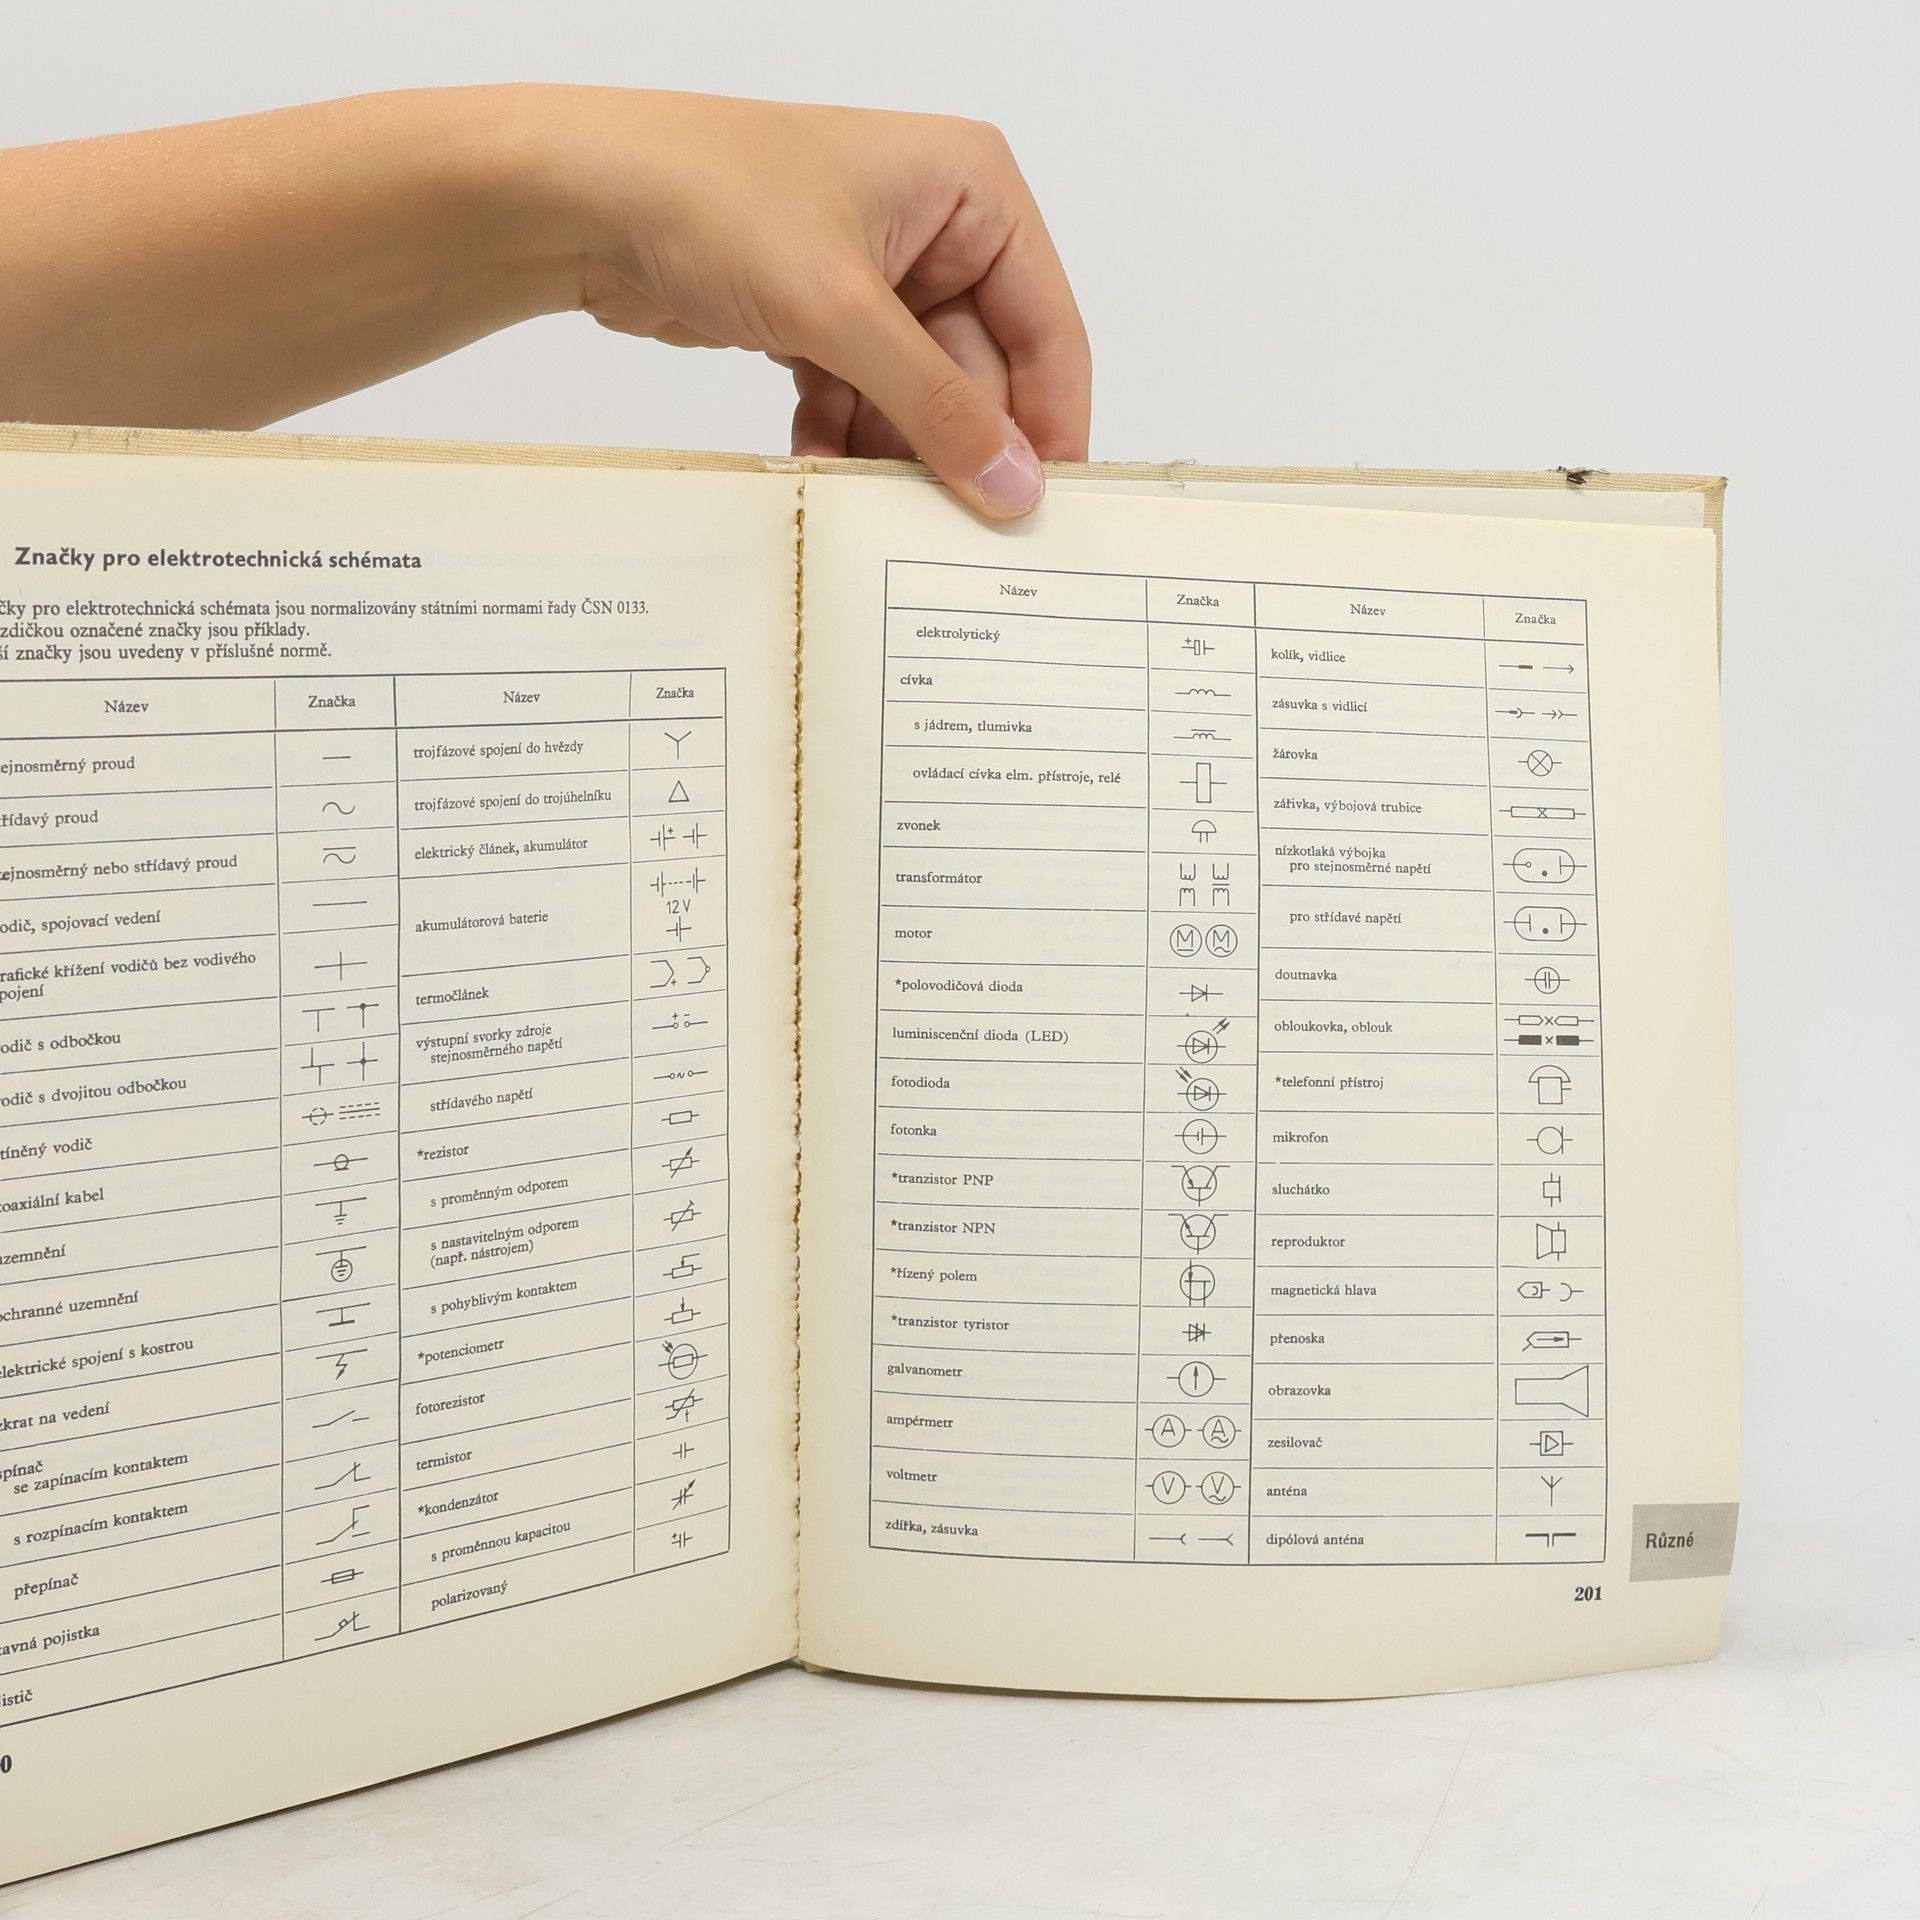 Značky pro elektrotechnická schémata
pro elektrotechnická schémata jsou normalizovány státními normami řady ČSN 0133.
označené značky jsou příklady.
značky jsou uvedeny v příslušné normě.
Název
Značka
Název
Značka
ejnosměrný proud
řídavý proud
ejnosměrný nebo střídavý proud
odič, spojovací vedení
rafické křížení vodičů bez vodivého
pojení
odič s odbočkou
odič s dvojitou odbočkou
tíněný vodič
oaxiální kabel
uzemnění
ochranné uzemnění
elektrické spojení s kostrou
zkrat na vedení
spínač
se zapínacím kontaktem
s rozpínacím kontaktem
přepínač
tavná pojistka
jistič
trojfázové spojení do hvězdy
trojfázové spojení do trojúhelníku
elektrický článek, akumulátor
akumulátorová baterie
12 V
termočlánek
výstupní svorky zdroje
stejnosměrného napětí
střídavého napětí
*rezistor
s proměnným odporem
s nastavitelným odporem
(např. nástrojem)
s pohyblivým kontaktem
*potenciometr
fotorezistor
termistor
*kondenzátor
s proměnnou kapacitou
polarizovaný
0
Název
Značka
Název
Značka
elektrolytický
cívka
s jádrem, tlumivka
ovládací cívka elm. přístroje, relé
zvonek
transformátor
motor
M M
*polovodičová dioda
luminiscenční dioda (LED)
fotodioda
fotonka
*tranzistor PNP
*tranzistor NPN
*řízený polem
*tranzistor tyristor
galvanometr
ampérmetr
A A
voltmetr
V V
zdířka, zásuvka
kolík, vidlice
zásuvka s vidlicí
žárovka
zářivka, výbojová trubice
nízkotlaká výbojka
pro stejnosměrné napětí
pro střídavé napětí
doutnavka
obloukovka, oblouk
*telefonní přístroj
mikrofon
sluchátko
reproduktor
magnetická hlava
přenoska
obrazovka
zesilovač
anténa
dipólová anténa
Různé
201